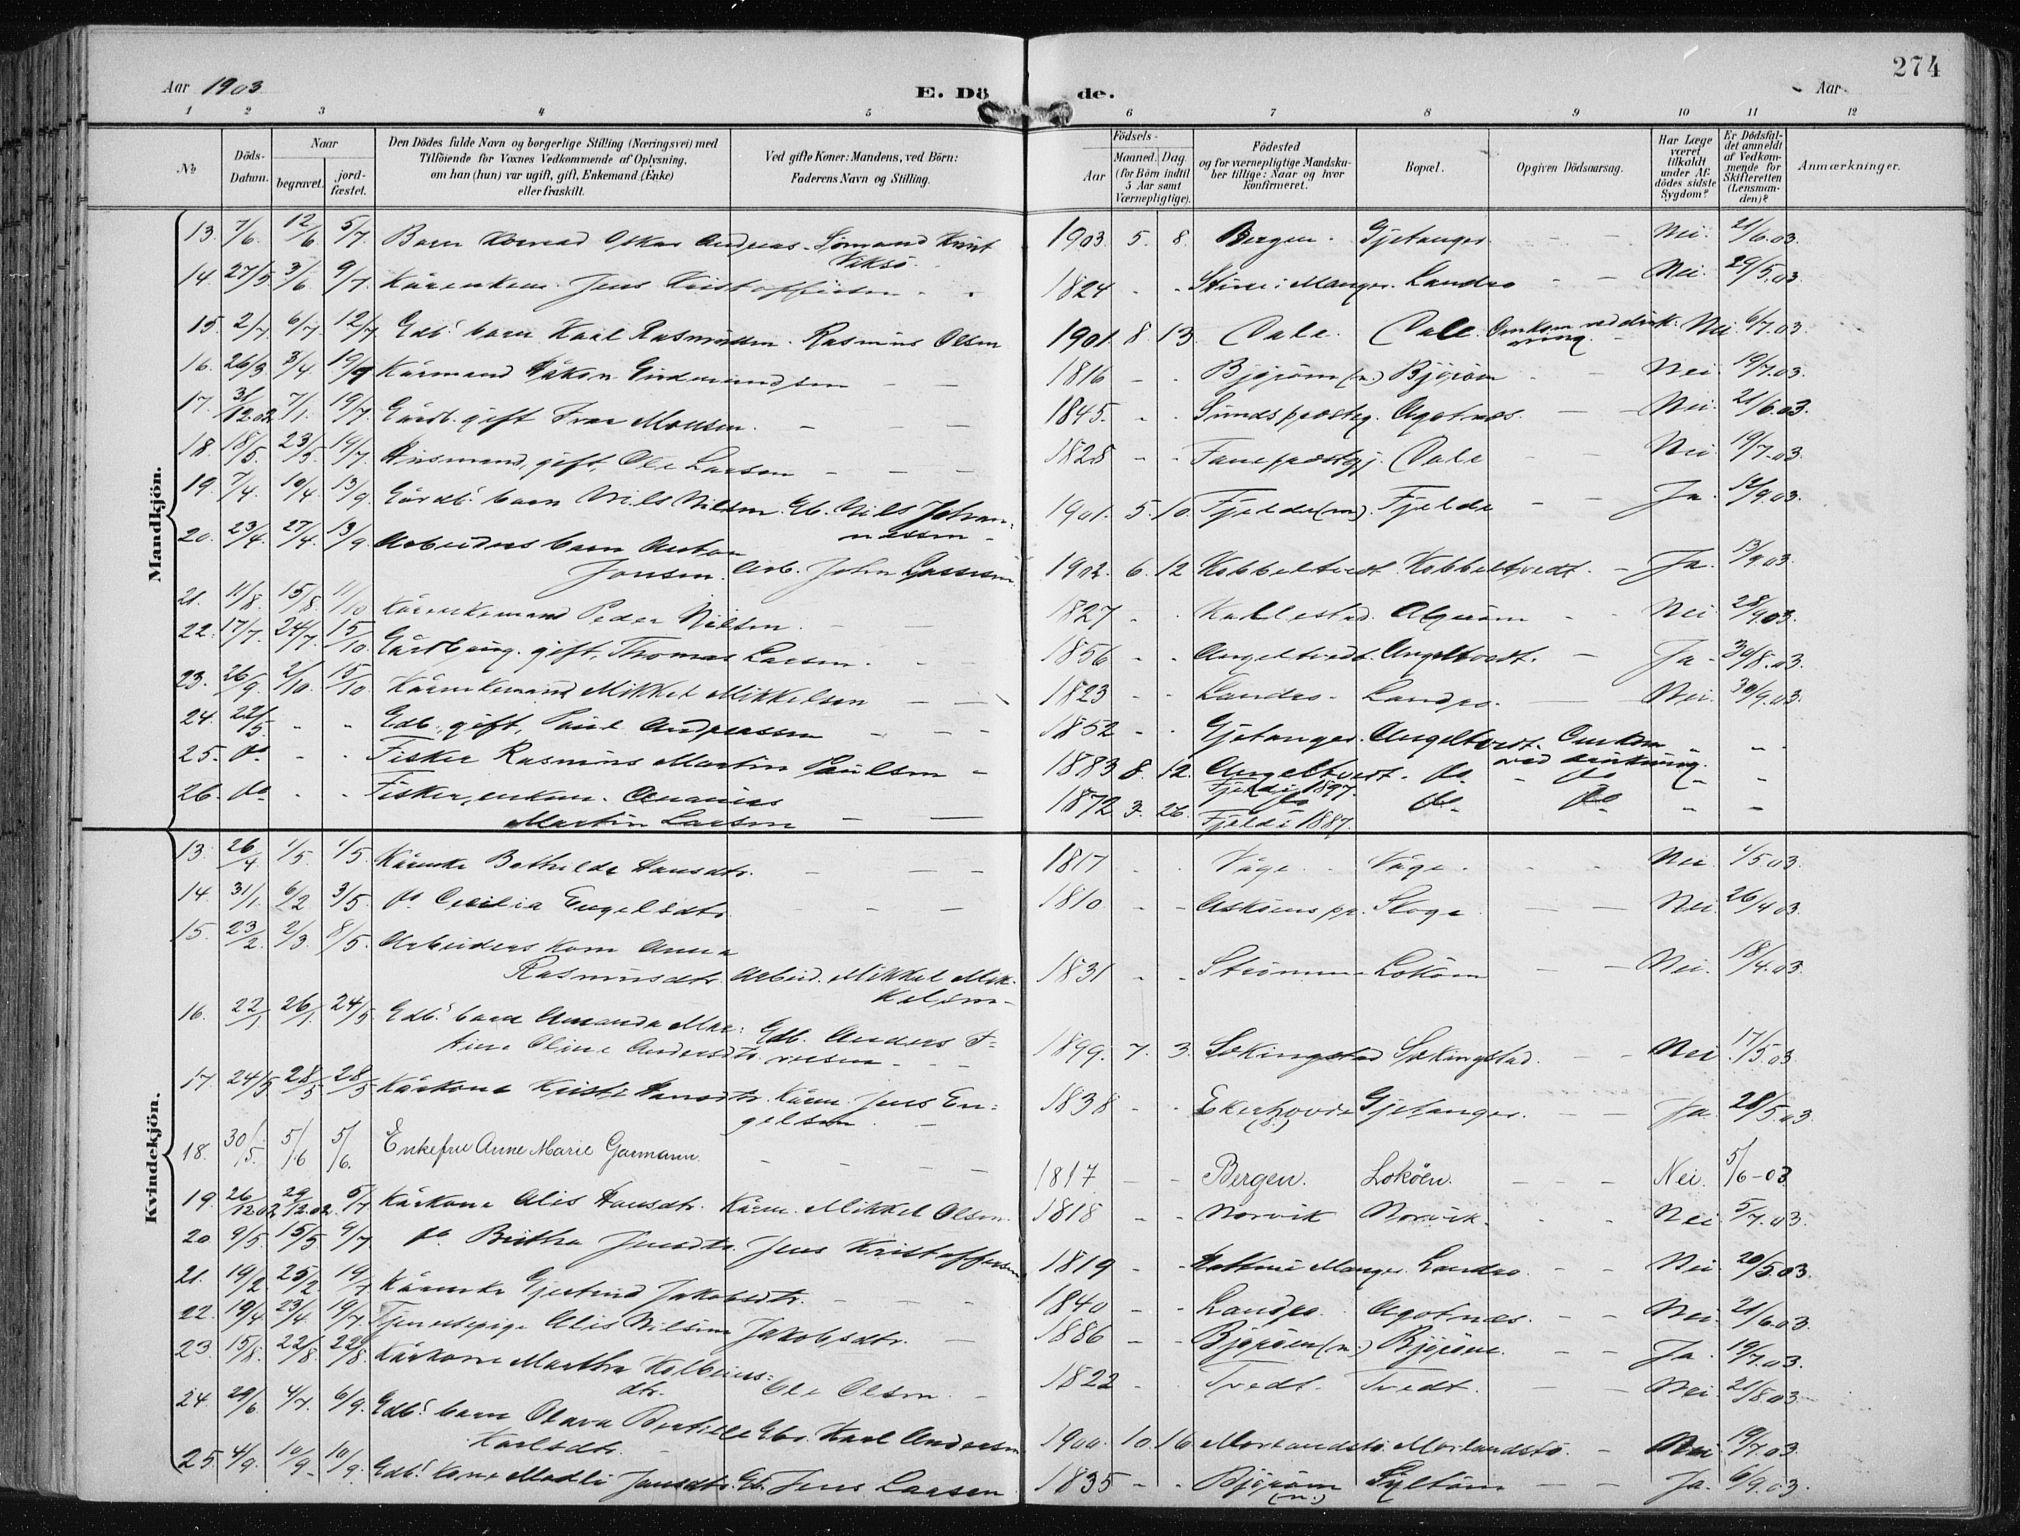 274
Aar 1903
E. Dö de.
Aar
1 2 3 4 5 6 7 8 9 10 11 12
No
Döds-Datum.
Naar
begravet.
jord-fæstet.
Den Dödes fulde Navn og borgerlige Stilling (Næringsvei) med Tilföiende for Voxnes Vedkommende af Oplysning, om han (hun) var ugift, gift, Enkemand (Enke) eller fraskilt.
Ved gifte Koner: Mandens, ved Börn: Faderens Navn og Stilling.
Födsels-
Aar
Maaned. Dag.
(for Börn indtil 5 Aar samt Værnepligtige).
Födested og for værnepligtige Mandskaber tillige: Naar og hvor konfirmeret.
Bopæl.
Opgiven Dödsaarsag.
Har Læge været tilkaldt under Afdödes sidste Sygdom?
Er Dödsfaldet anmeldt af Vedkommende for Skifteretten (Lensmanden)?
Anmærkninger.
Mandkjön.
13. 7/6. 12/6 5/7. Barn Konrad Oskar Andreas. Sömand Knut Viksö. 1903. 5. 8. Bergen. Gjetanger. Nei. 21/6.03.
14. 27/5 3/6. 9/7. Jens Kristoffersen 1824 Manger. Landro Nei. 29/5.03.
15. 2/7 6/7. 12/7 Gdb. barn Rasmussen. Rasmus Olsen 1901. 8. 13. Dale. Dale. Omkom ved drukning. Nei. 6/7.03.
16. 26/3 3/4. 19/7 Kårmand Håkon 1816 Björöen (n.) Björöen Nei. 19/7.03.
17. 31/12.02. 7/1. 19/7. Gårdb. gift Ivar Monsen. 1845. Sunds præsteg. Agotnæs. Nei. 21/6.03.
18. 18/5. 23/5. 19/7. Husmand, gift, Ole Larsen 1828 Fane præstegj. Dale Nei. 19/7.03.
19. 7/4. 10/4. 13/9. Gårdb. barn Nils Nilsen. Gb. Nils Johannessen 1901. 5. 10. Fjelde (m). Fjelde Ja. 12/9.03.
20. 23/4. 27/4. 13/9. Arbeiders barn Anton
Jonsen. Arb. John 1902. 6. 12 Kobbeltvedt. Kobbeltvedt. Ja. 13/9.03.
21. 11/8. 15/8. 11/10 Kårenkemand Peder Nilsen. 1827 Kallestad. Algeröen Nei. 28/9.03.
22. 17/7. 24/7. 15/10. gift, Thomas Larsen. 1856 Angeltvedt. Angeltvedt. Ja. 30/8.03.
23. 26/9. 2/10. 15/10. Kårenkemand Mikkel Mikkelsen 1823 Landro. Landro. Nei. 30/9.03.
24. 22/5 Gdb., gift, Paul Andreassen 1852 Gjetanger. Angeltvedt. Omkom ved drukning.
25. do Fisker Rasmus Martin Paulsen 1883 8. 12. Angeltvedt. do do
Fjeld i 1897.
26. do Fisker, enkem. Ananias
Martin Larsen 1872 3. 26. do do do
Fjeld i 1887.
Kvindekjön.
13. 26/4 1/5. 1/5. Kårenke Bothilde Hansdtr. 1817 Våge. Våge. Nei 1/5.03.
14. 31/1. 6/2 3/5. do Cecilia Engelsdtr 1810 Askøens pr. Skoge. Nei. 26/4.03.
15. 23/2. 2/3. 8/5. Arbeiders kone Anna
Rasmusdtr. Arbeid. Mikkel Mikkelsen 1831 Strømme Loköen Nei. 18/4.03.
16. 22/1 26/1. 24/5 Gdb. barn Amanda Martine Oline Andersdtr. Gdb. Anders Iversen 1899. 7. 3. Sekkingstad Sekkingstad. Nei. 17/5.03.
17. 24/5 28/5 28/5 Kårkone Kristi Hansdtr. Kårm. Jens Engelsen 1838 Ekerhovde Gjetanger. Ja. 28/5.03.
18. 30/5. 5/6 5/6. Enkefrue Anne Marie Garmann. 1817 Bergen. Loköen. Nei. 5/6-03
19. 26/12.02. 29/12.02. 5/7 Kårkone Alis Hansdtr. Kårm. Mikkel Olsen. 1818 Norvik Norvik. Nei 5/7.03.
20 9/5. 15/5 9/7 do Britha Jensdtr. Jens Kristoffersen 1819 Manger. Landro. Nei. 20/5.03.
21. 19/2 25/2 19/7 Kårenke Gjertrud Jakobsdtr. 1840 Landro. Agotnæs. Nei. 21/6.03.
22. 19/4 23/4. 19/7. Tjenestepige Alis Nilsine Jakobsdtr. 1886 Björöen (n.) Björöen. Ja. 19/7.03.
23. 15/8. 22/8. 22/8. Kårkone Martha Kolbeinsdtr. Ole Olsen. 1822 Tvedt. Tvedt. Nei 21/8.03.
24. 29/6 4/7. 6/9. Gdb. barn Olava Bertille
Karlsdtr. Gbr. Karl Andersen 1900. 10. 16. Morlandstö. Morlandstö. Nei 19/7.03.
25. 4/9. 10/9. 10/9. Gdb. kone Madli Jensdtr. Gb. Jens Larsen 1835 Björöen (n.) Syltöen Ja. 6/9.03.